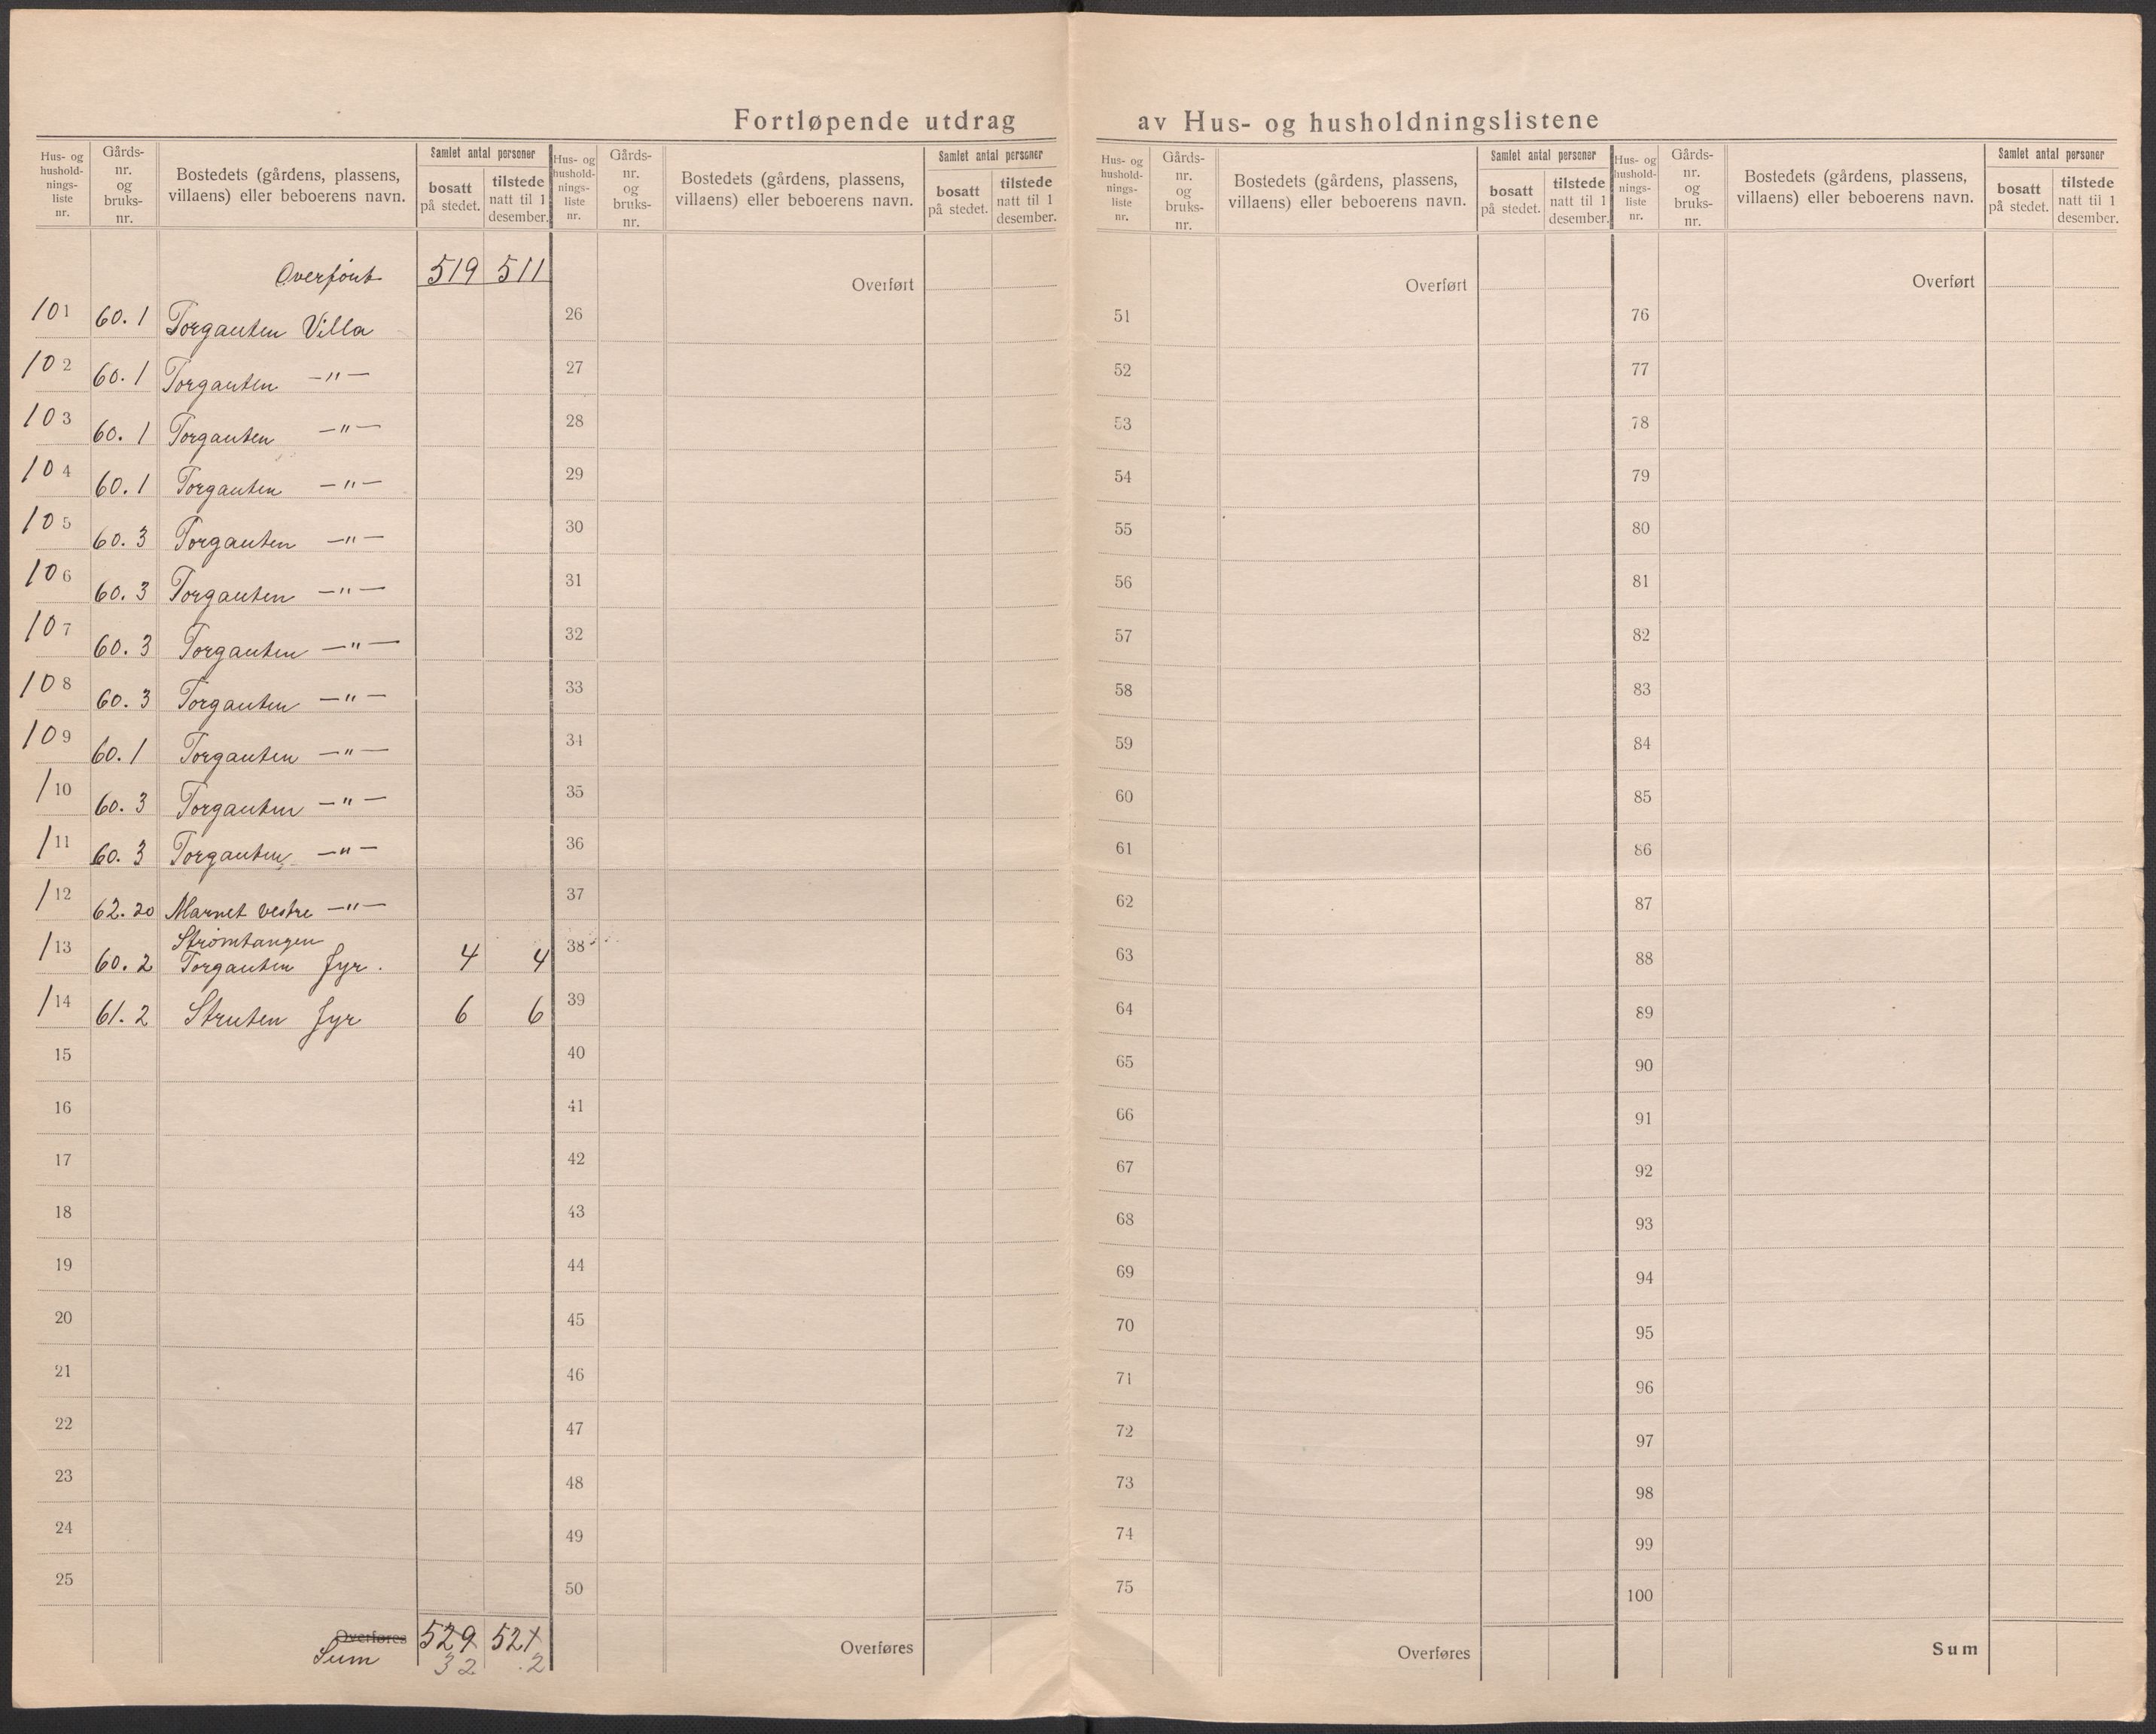 Fortløpende utdrag av Hus- og husholdningslistene
Hus- og hushold-nings-liste nr. Gårds-nr. og bruks-nr. Bostedets (gårdens, plassens, villaens) eller beboerens navn. Samlet antal personer bosatt på stedet. tilstede natt til 1 desember.
Overført 519 511
101 60. 1 Torgauten Villa
102 60. 1 Torgauten —"—
103 60. 1 Torgauten —"—
104 60. 1 Torgauten —"—
105 60. 3 Torgauten —"—
106 60. 3 Torgauten —"—
107 60. 3 Torgauten —"—
108 60. 3 Torgauten —"—
109 60. 1 Torgauten —"—
110 60. 3 Torgauten —"—
111 60. 3 Torgauten —"—
112 62. 20 Marnet vestre —"—
Strømtangen
113 60. 2 Torgauten fyr. 4 4
114 61. 2 Struten fyr 6 6
15
16
17
18
19
20
21
22
23
24
25
Overføres 529 521
Sum 32 .2
Hus- og hushold-nings-liste nr. Gårds-nr. og bruks-nr. Bostedets (gårdens, plassens, villaens) eller beboerens navn. Samlet antal personer bosatt på stedet. tilstede natt til 1 desember.
Overført
26
27
28
29
30
31
32
33
34
35
36
37
38
39
40
41
42
43
44
45
46
47
48
49
50
Overføres
Hus- og hushold-nings-liste nr. Gårds-nr. og bruks-nr. Bostedets (gårdens, plassens, villaens) eller beboerens navn. Samlet antal personer bosatt på stedet. tilstede natt til 1 desember.
Overført
51
52
53
54
55
56
57
58
59
60
61
62
63
64
65
66
67
68
69
70
71
72
73
74
75
Overføres
Hus- og hushold-nings-liste nr. Gårds-nr. og bruks-nr. Bostedets (gårdens, plassens, villaens) eller beboerens navn. Samlet antal personer bosatt på stedet. tilstede natt til 1 desember.
Overført
76
77
78
79
80
81
82
83
84
85
86
87
88
89
90
91
92
93
94
95
96
97
98
99
100
Sum